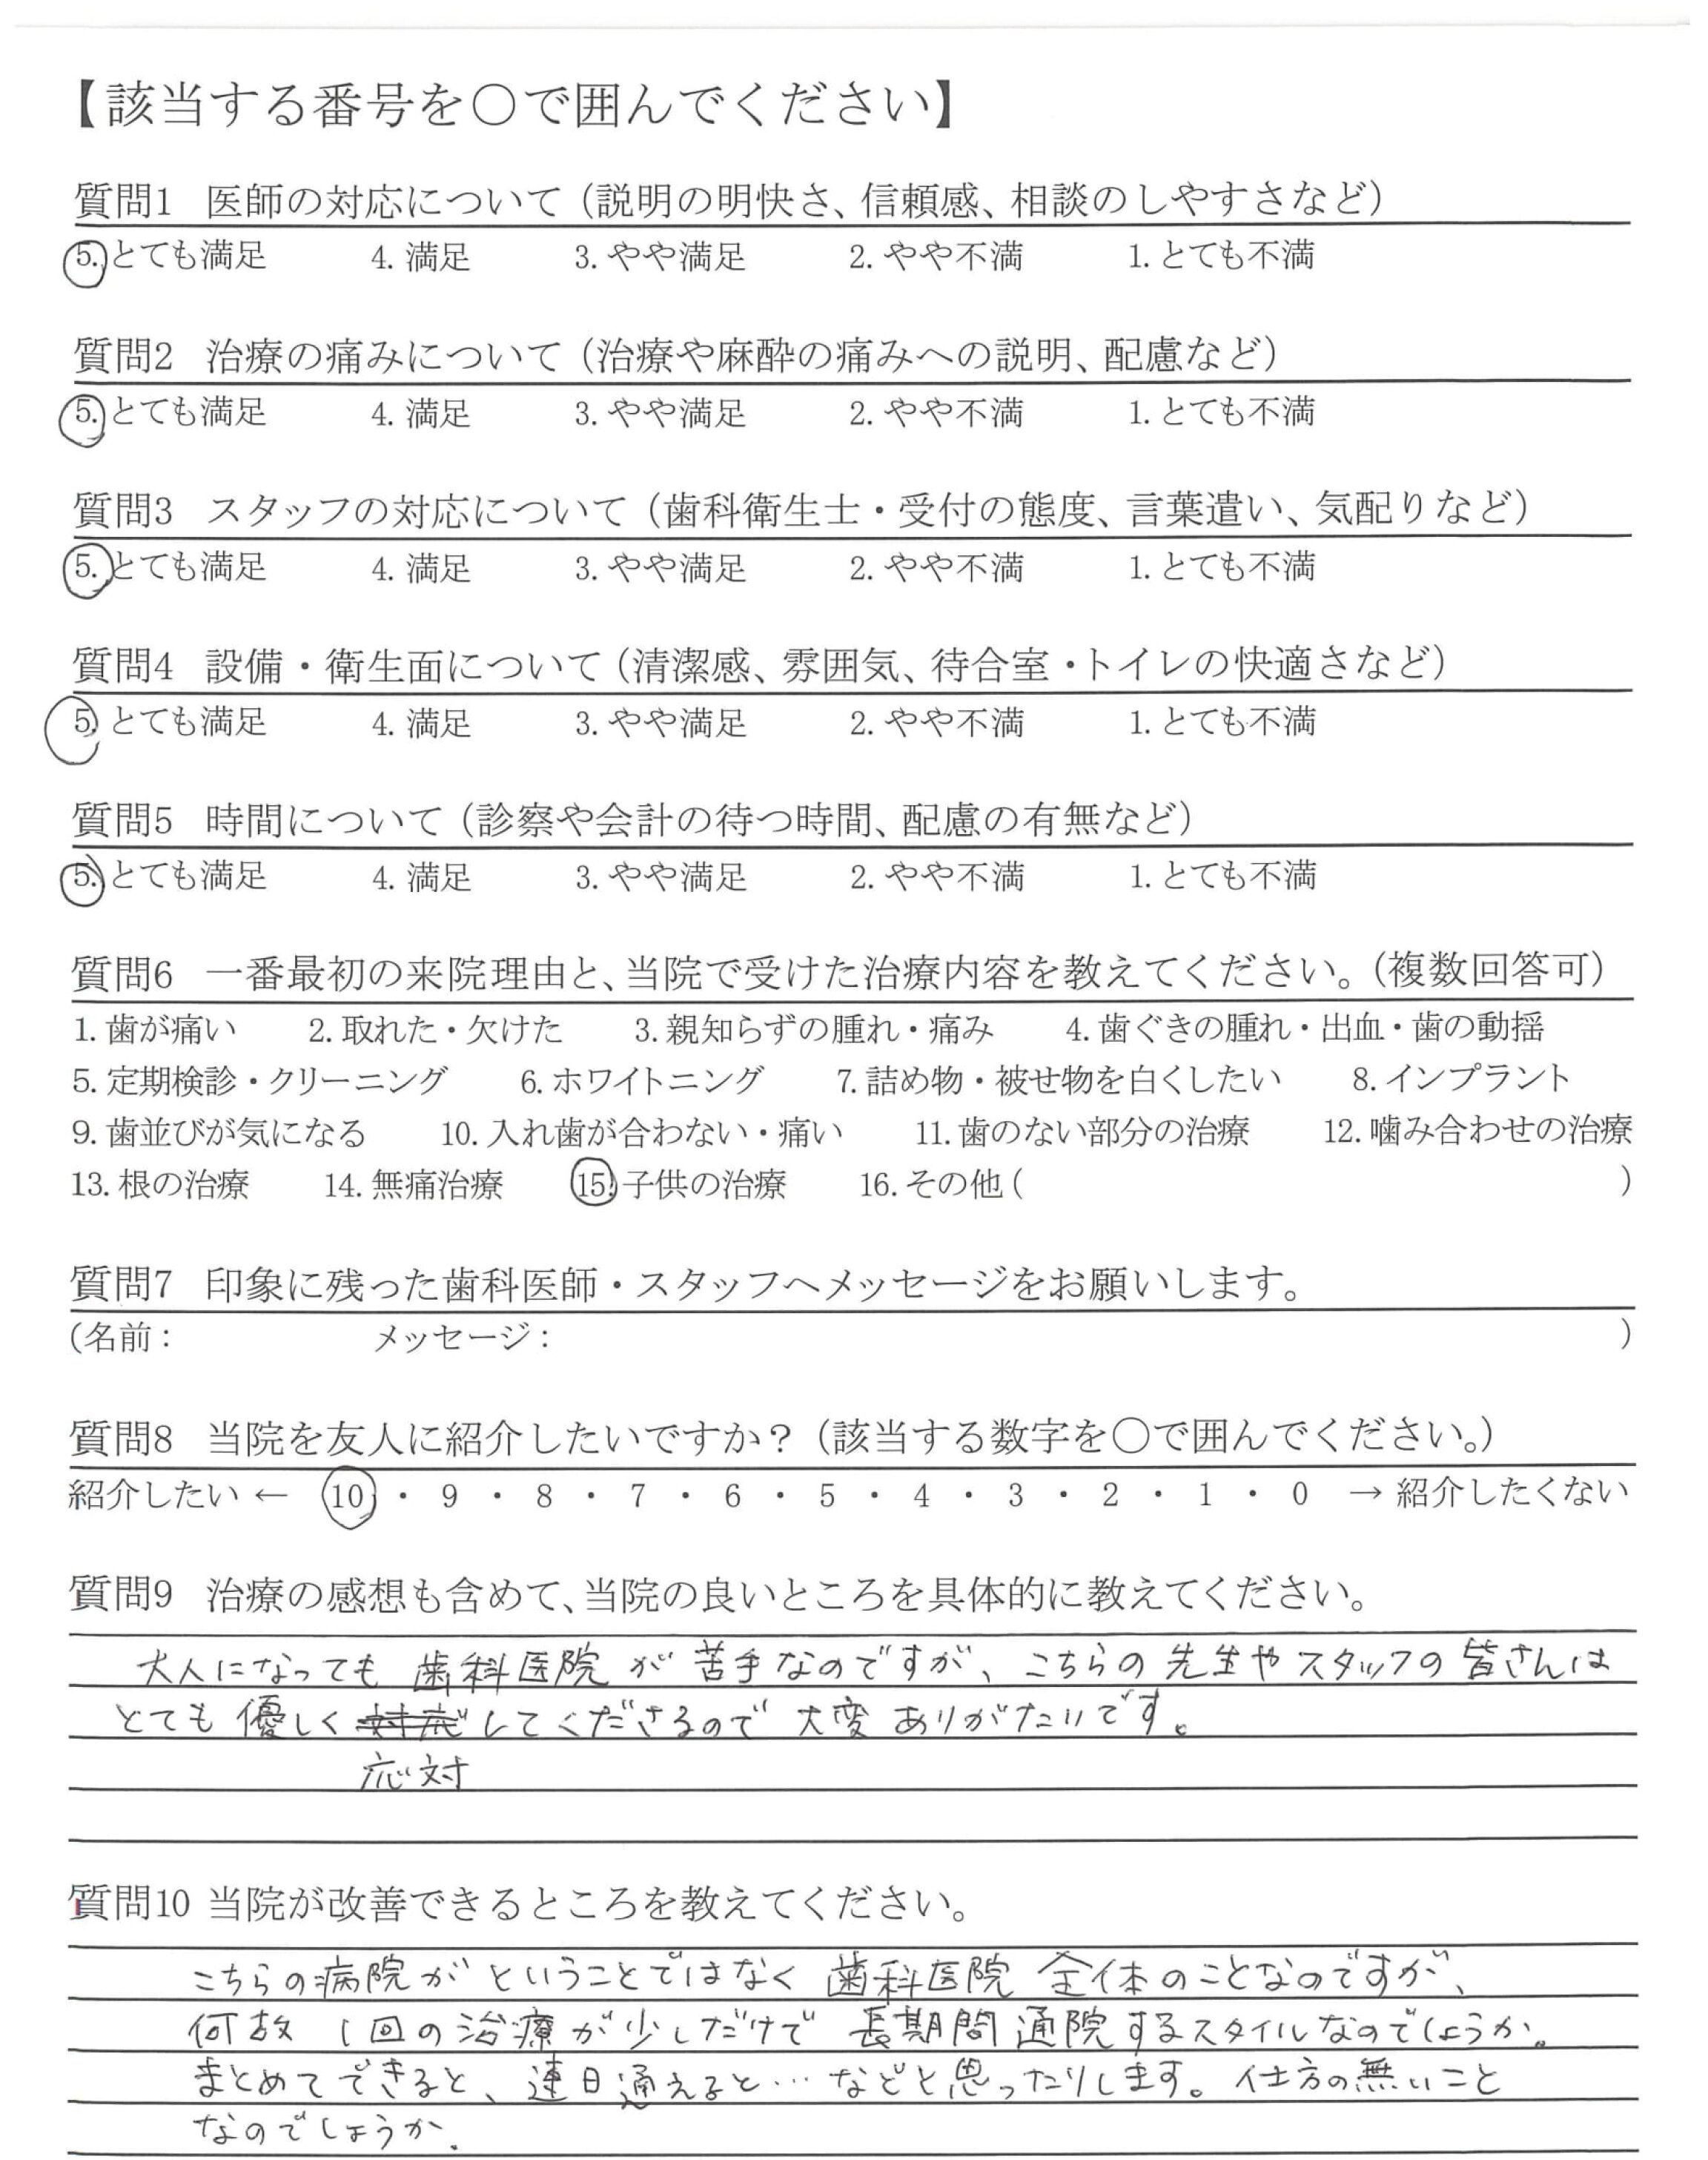 【該当する番号を○で囲んでください】
質問1 医師の対応について（説明の明快さ、信頼感、相談のしやすさなど）
5. とても満足 4. 満足 3. やや満足 2. やや不満 1. とても不満
質問2 治療の痛みについて（治療や麻酔の痛みへの説明、配慮など）
5. とても満足 4. 満足 3. やや満足 2. やや不満 1. とても不満
質問3 スタッフの対応について（歯科衛生士・受付の態度、言葉遣い、気配りなど）
5. とても満足 4. 満足 3. やや満足 2. やや不満 1. とても不満
質問4 設備・衛生面について（清潔感、雰囲気、待合室・トイレの快適さなど）
5. とても満足 4. 満足 3. やや満足 2. やや不満 1. とても不満
質問5 時間について（診察や会計の待つ時間、配慮の有無など）
5. とても満足 4. 満足 3. やや満足 2. やや不満 1. とても不満
質問6 一番最初の来院理由と、当院で受けた治療内容を教えてください。（複数回答可）
1. 歯が痛い 2. 取れた・欠けた 3. 親知らずの腫れ・痛み 4. 歯ぐきの腫れ・出血・歯の動揺
5. 定期検診・クリーニング 6. ホワイトニング 7. 詰め物・被せ物を白くしたい 8. インプラント
9. 歯並びが気になる 10. 入れ歯が合わない・痛い 11. 歯のない部分の治療 12. 噛み合わせの治療
13. 根の治療 14. 無痛治療 15. 子供の治療 16. その他（ ）
質問7 印象に残った歯科医師・スタッフへメッセージをお願いします。
（名前： メッセージ： ）
質問8 当院を友人に紹介したいですか？（該当する数字を○で囲んでください。）
紹介したい ← 10 ・ 9 ・ 8 ・ 7 ・ 6 ・ 5 ・ 4 ・ 3 ・ 2 ・ 1 ・ 0 → 紹介したくない
質問9 治療の感想も含めて、当院の良いところを具体的に教えてください。
大人になっても 歯科医院 が 苦手なのですが、こちらの 先生や スタッフの 皆さんは
とても 優しく 対応 してくださるので 大変 ありがたいです。
応対
質問10 当院が改善できるところを教えてください。
こちらの病院が ということではなく 歯科医院 全体のことなのですが、
何故 1回の治療が少しだけで 長期間 通院するスタイルなのでしょうか。
まとめてできると、連日通えると… などと思ったりします。仕方の無いこと
なのでしょうか。